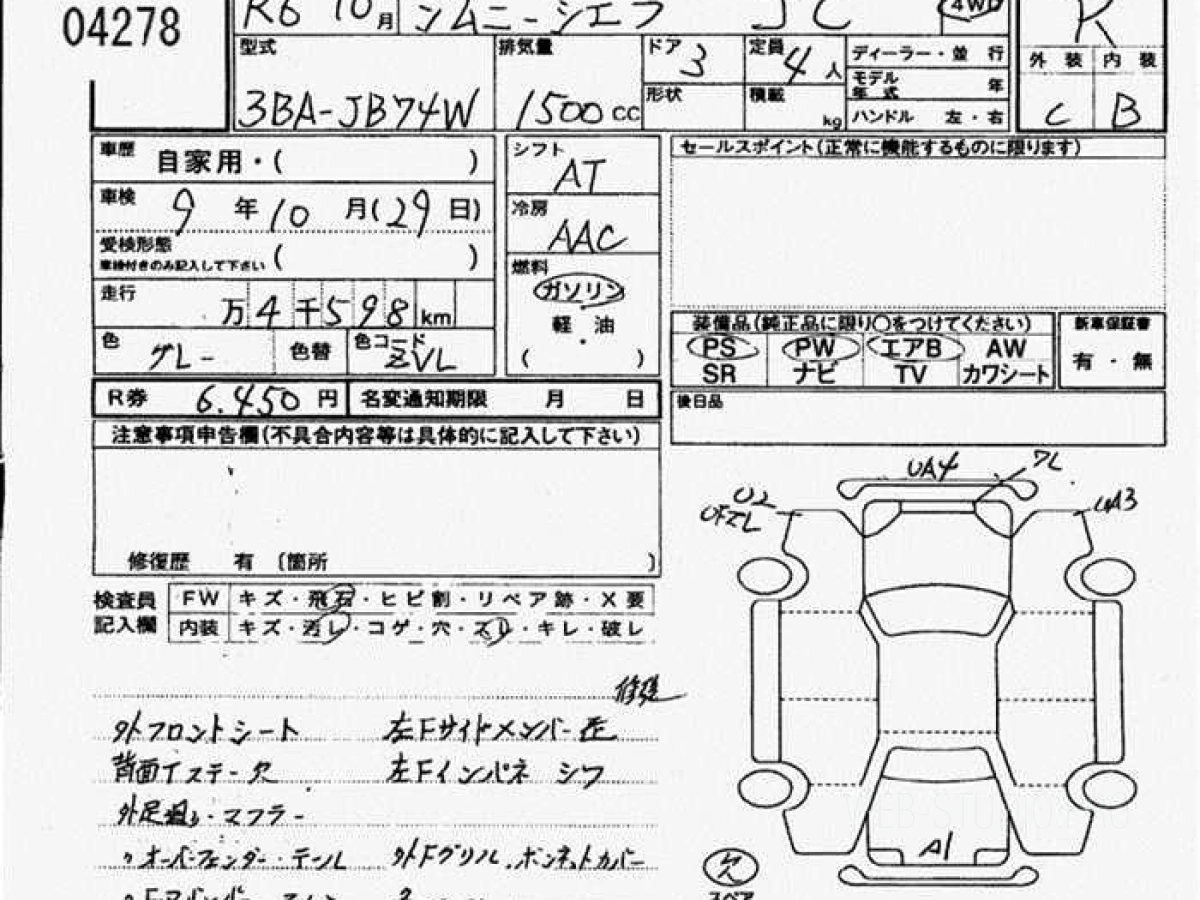 04278
R6 10月 ジムニーシエラ JC 4WD R
型式 3BA-JB74W
排気量 1500 cc
ドア 3
定員 4 人
形状
積載 kg
ディーラー・並 行
モデル年式 年
ハンドル 左・右
外 装 内 装
C B
車歴 自家用・( )
車検 9 年 10 月(29 日)
受検形態 ( )
車検付きのみ記入して下さい
走行 万 4 千 5 9 8 km
色 グレー 色替 色コード ZVL
シフト AT
冷房 AAC
燃料 ガソリン
軽 油
( ・ )
セールスポイント(正常に機能するものに限ります)
装備品(純正品に限り〇をつけてください)
PS PW エアB AW
SR ナビ TV カワシート
新車保証書
有 ・ 無
R券 6.450 円 名変通知期限 月 日
後日品
注意事項申告欄(不具合内容等は具体的に記入して下さい)
修復歴 有 〔箇所 〕
UA4
U2
UA3
検査員記入欄
FW キズ・飛石・ヒビ割・リペア跡・X要
内装 キズ・汚レ・コゲ・穴・スレ・キレ・破レ
外フロントシート 左Fサイドメンバー
背面Tステー欠 左Fインパネ シワ
外足廻り・マフラー
〃オーバーフェンダー・テール 外Fグリル.ボンネットカバー
A1
欠
スペア